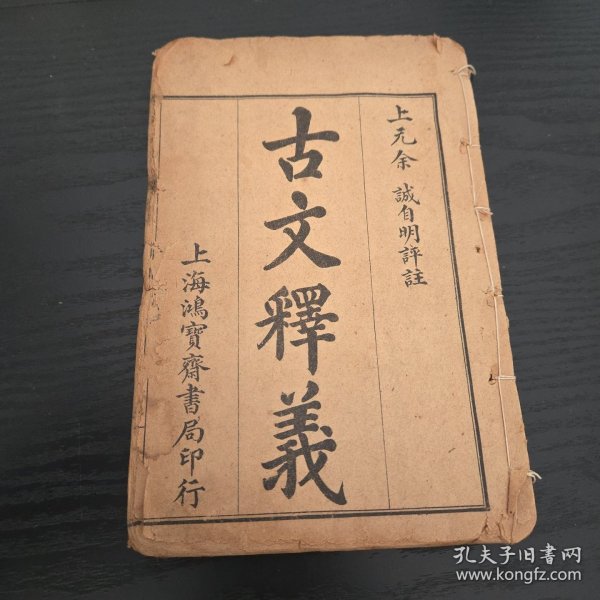 上元余 誠自明評註
古文釋義
上海鴻寶齋書局印行
孔夫子旧书网
www.kongfz.com